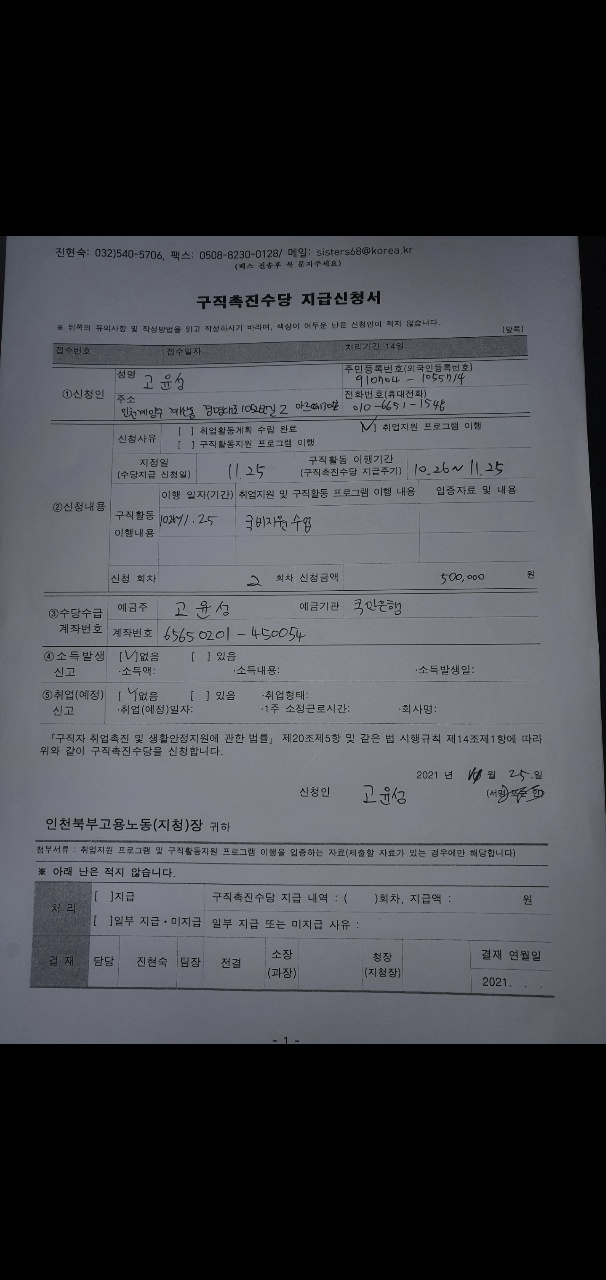 진현숙: 032)540-5706, 팩스: 0508-8230-0128/ 메일: sisters68@korea.kr
(팩스 전송후 꼭 문자주세요)
구직촉진수당 지급신청서
※ 뒤쪽의 유의사항 및 작성방법을 읽고 작성하시기 바라며, 색상이 어두운 난은 신청인이 적지 않습니다.
(앞쪽)
접수번호 접수일자 처리기간 14일
①신청인
성명 고윤성
주민등록번호(외국인등록번호)
910704 - 1055714
주소 인천계양구 계산동
전화번호(휴대전화)
010-6651-1548
②신청내용
신청사유
[ ] 취업활동계획 수립 완료 [V] 취업지원 프로그램 이행
[ ] 구직활동지원 프로그램 이행
지정일
(수당지급 신청일)
11.25
구직활동 이행기간
(구직촉진수당 지급주기)
10.26~11.25
구직활동
이행내용
이행 일자(기간) 취업지원 및 구직활동 프로그램 이행 내용 입증자료 및 내용
국비지원수업
신청 회차 2 회차 신청금액 500,000 원
③수당수급
계좌번호
예금주 고윤성 예금기관 국민은행
계좌번호 65650201-450054
④소득발생
신고
[V]없음 [ ] 있음
·소득액: ·소득내용: ·소득발생일:
⑤취업(예정)
신고
[V]없음 [ ] 있음 ·취업형태:
·취업(예정)일자: ·1주 소정근로시간: ·회사명:
「구직자 취업촉진 및 생활안정지원에 관한 법률」 제20조제5항 및 같은 법 시행규칙 제14조제1항에 따라
위와 같이 구직촉진수당을 신청합니다.
2021 년 11 월 25 일
신청인 고윤성 (서명 또는 인)
인천북부고용노동(지청)장 귀하
첨부서류 : 취업지원 프로그램 및 구직활동지원 프로그램 이행을 입증하는 자료(제출할 자료가 있는 경우에만 해당합니다)
※ 아래 난은 적지 않습니다.
처 리
[ ]지급 구직촉진수당 지급 내역 : ( )회차, 지급액 : 원
[ ]일부 지급·미지급 일부 지급 또는 미지급 사유 :
결 재 담당 진현숙 팀장 전결
소장
(과장)
청장
(지청장)
결재 연월일
2021. . .
- 1 -